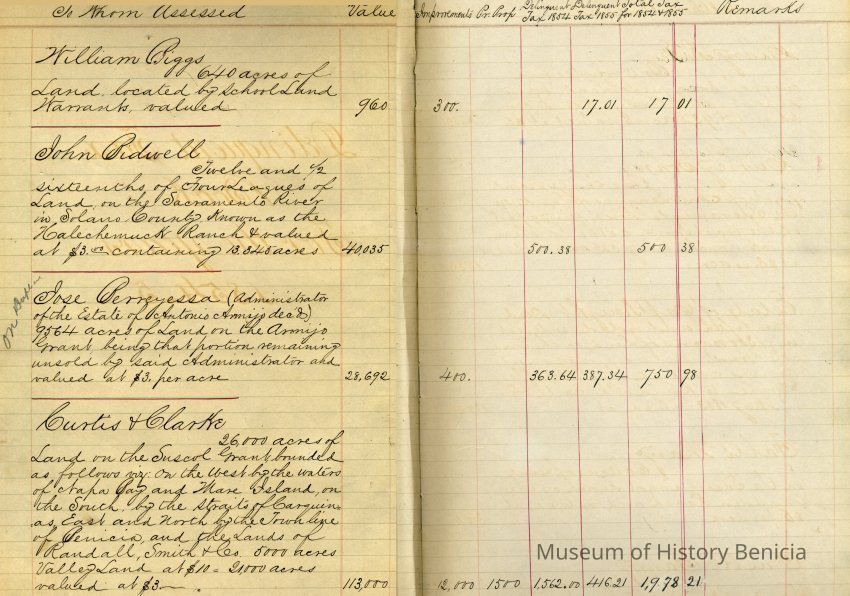 To Whom Assessed Value Improvements Pr. Prop Delinquent Tax 1854 Delinquent Tax 1855 Total Tax for 1854 & 1855 Remarks
William Biggs
640 acres of
Land, located by School Land
Warrants, valued 960 300. 17.01 17 01
John Bidwell
Twelve and 1/2
sixteenths of Four Leagues of
Land, on the Sacramento River
in Solano County Known as the
Halechemuck Ranch & valued
at $3.00 containing 13.345 acres 40,035 500.38 500 38
Jose Berreyessa (Administrator
of the Estate of Antonio Armijo dec'd)
9564 acres of Land on the Armijo
Grant being that portion remaining
unsold by said Administrator and
valued at $3. per acre 28,692 400. 363.64 387.34 750 98
Curtis & Clarke
26000 acres of
Land on the Suscol Grant bounded
as follows viz: On the West by the waters
of Napa Bay and Mare Island, on
the South, by the Straits of Carquin-
as, East and North by the Town line
of Benicia, and the Lands of
Randall, Smith & Co. 5000 acres
Valley Land at $10 = 21000 acres
valued at $3 113,000 12,000 1500 1,562.00 416.21 1,978 21
Museum of History Benicia